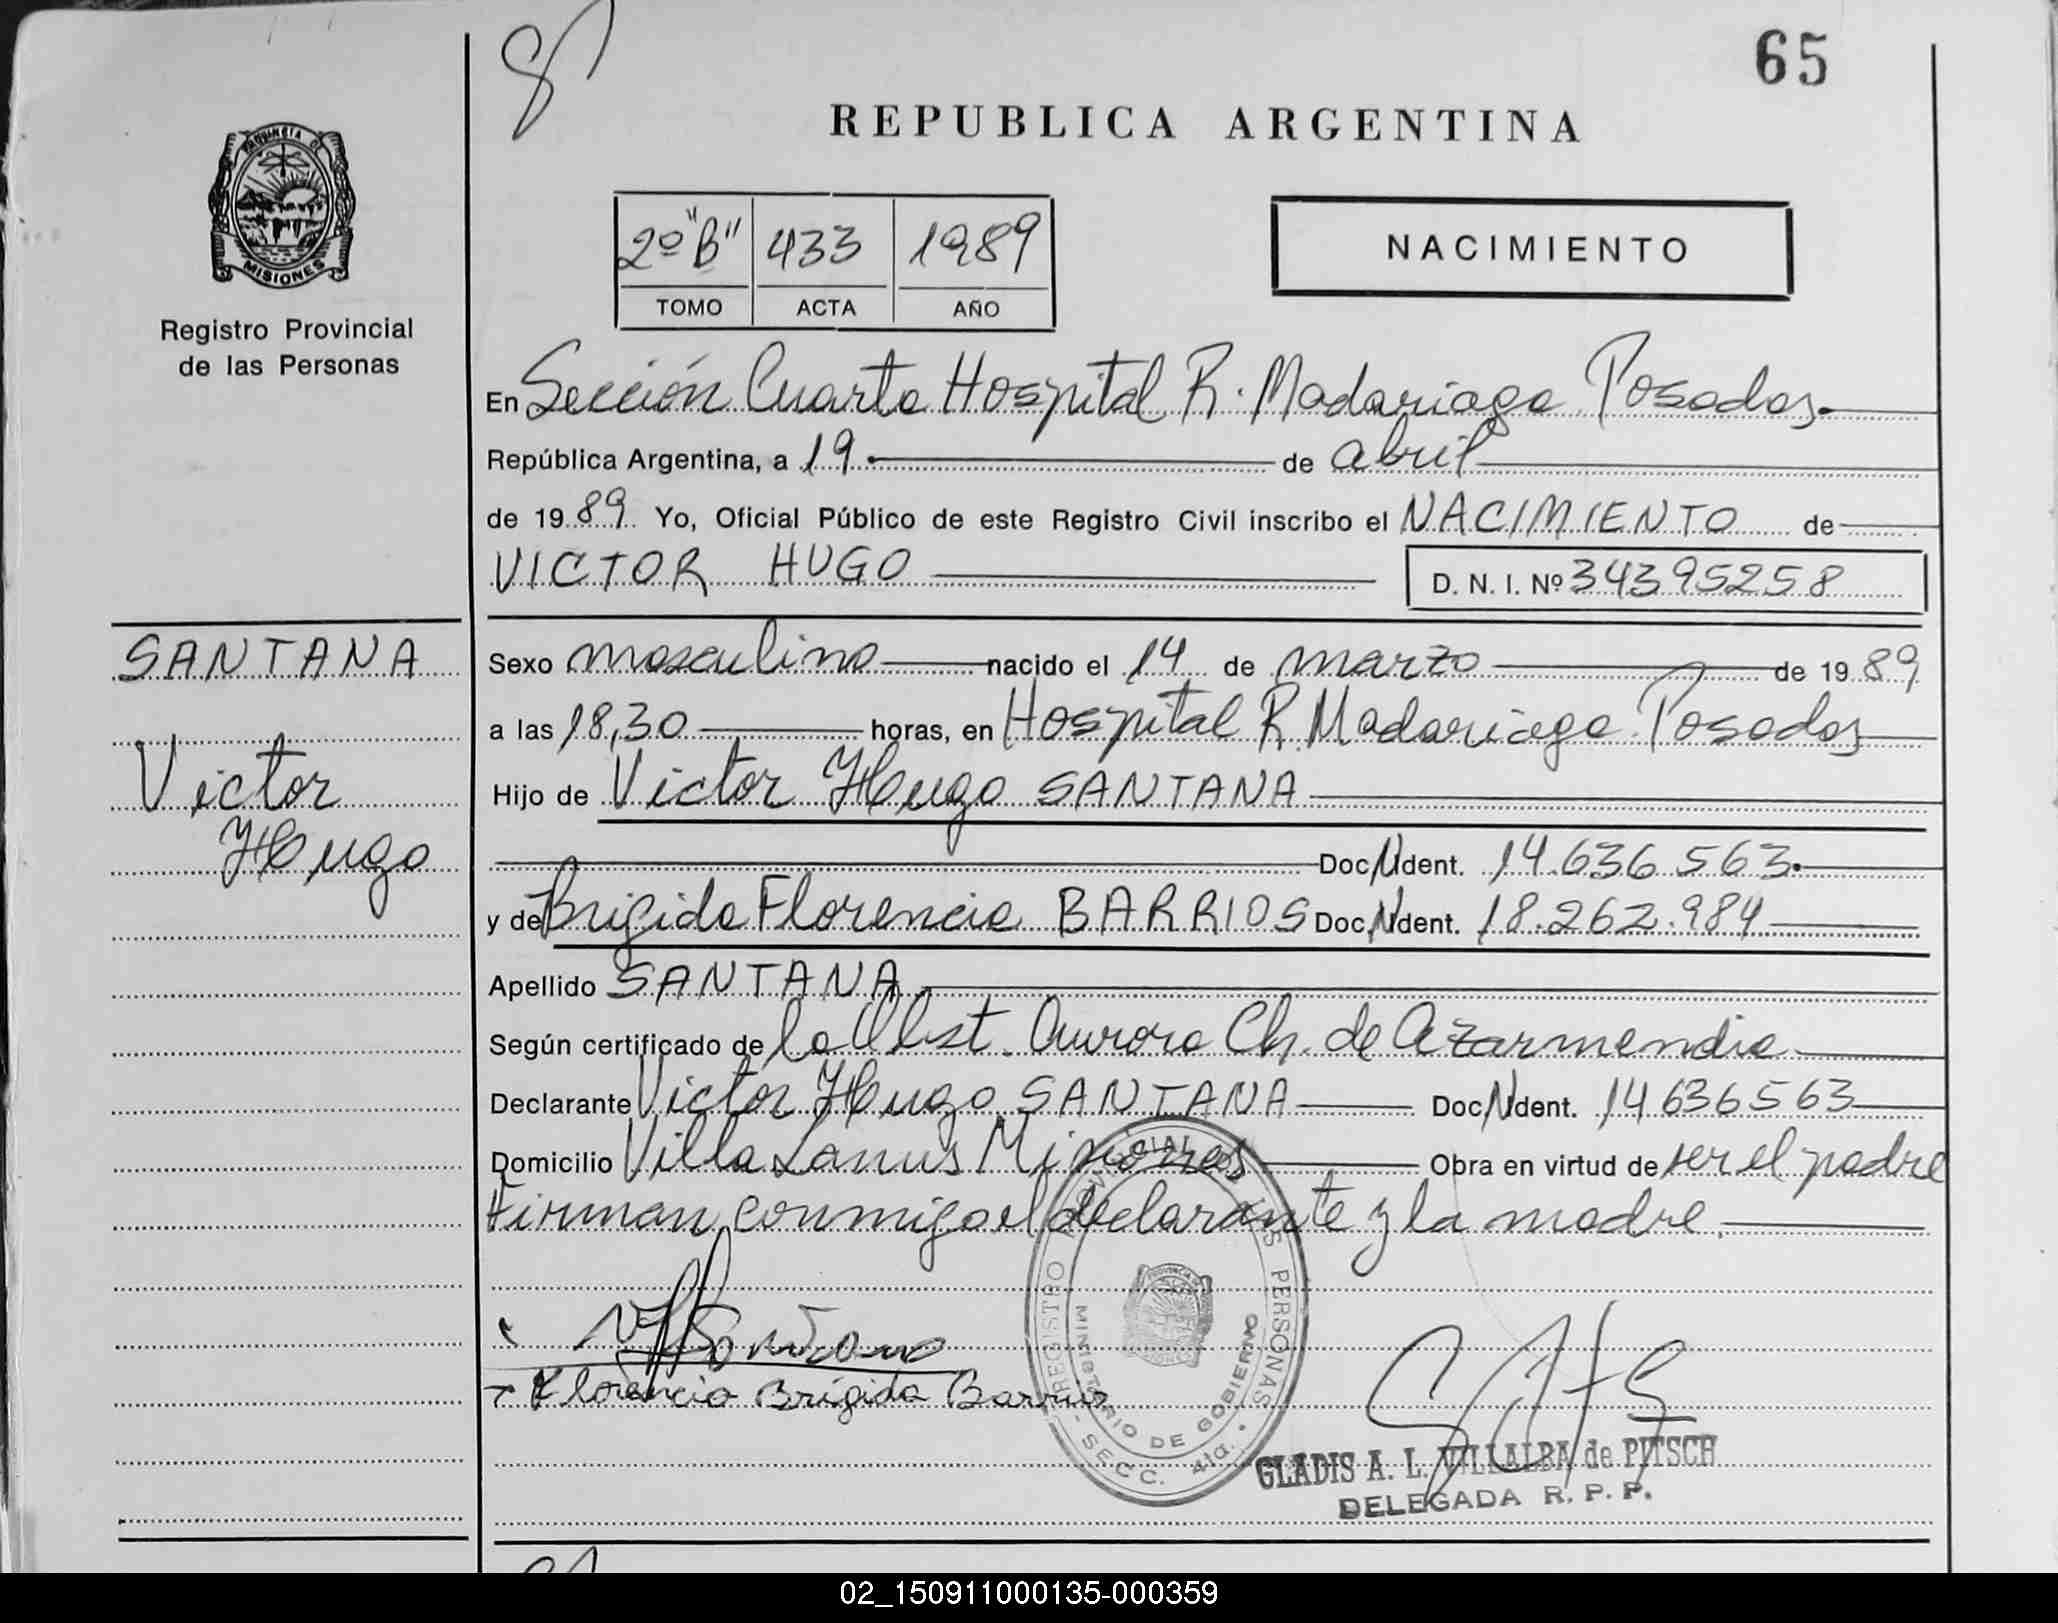 65
REPUBLICA ARGENTINA
PROVINCIA DE
MISIONES
Registro Provincial
de las Personas
2º "B" 433 1989
TOMO ACTA AÑO
NACIMIENTO
En Sección Cuarta Hospital R. Madariaga Posadas.
República Argentina, a 19 de abril
de 1989 Yo, Oficial Público de este Registro Civil inscribo el NACIMIENTO de
VICTOR HUGO D. N. I. Nº 34395258
SANTANA
Victor
Hugo
Sexo masculino nacido el 14 de marzo de 1989
a las 18,30 horas, en Hospital R Madariaga Posadas
Hijo de Victor Hugo SANTANA
Doc Ident. 14.636.563.
y de Brigida Florencia BARRIOS Doc Ident. 18.262.984
Apellido SANTANA
Según certificado de la Obst. Aurora Ch. de Azarmendia
Declarante Victor Hugo SANTANA Doc Ident. 14636563
Domicilio Villa Lanus Misiones Obra en virtud de ser el padre
Firman conmigo el declarante y la madre
Florencia Brígida Barrios
REGISTRO PROVINCIAL DE LAS PERSONAS
MINISTERIO DE GOBIERNO
SECC. 4ta.
GLADIS A. L. VILLALBA de PITSCH
DELEGADA R. P. P.
02_150911000135-000359